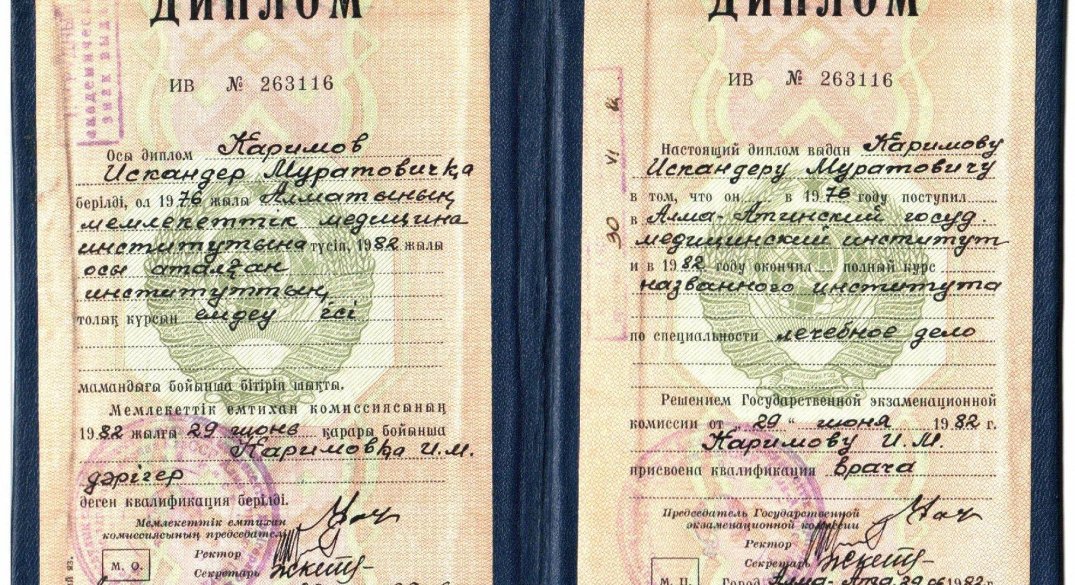 ДИПЛОМ
ИВ № 263116
академичес
знак выд
Осы диплом Каримов
Искандер Муратовичқа
берілді, ол 1976 жылы Алматының
мемлекеттік медицина
институтына түсіп, 1982 жылы
осы аталған
институттың
толық курсын емдеу ісі
мамандығы бойынша бітіріп шықты.
Мемлекеттік емтихан комиссиясының
1982 жылғы 29 июнь қарары бойынша
Каримовқа И.М.
дәрігер
деген квалификация берілді.
Мемлекеттік емтихан
комиссиясының председателі
Ректор
Секретарь
М. О.
ДИПЛОМ
ИВ № 263116
30 VI
Настоящий диплом выдан Каримову
Искандеру Муратовичу
в том, что он в 1976 году поступил
в Алма-Атинский госуд.
медицинский институт
и в 1982 году окончил полный курс
названного института
по специальности лечебное дело
Решением Государственной экзаменационной
комиссии от „29“ июня 1982 г.
Каримову И.М.
присвоена квалификация врача
Председатель Государственной
экзаменационной комиссии
Ректор
Секретарь
М. П.
Город Алма-Ата 29 06 1982